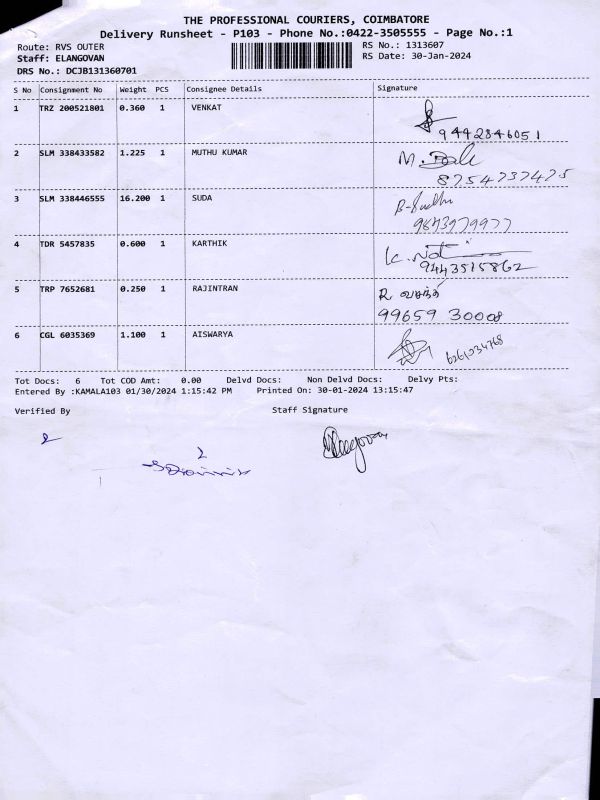 THE PROFESSIONAL COURIERS, COIMBATORE
Delivery Runsheet - P103 - Phone No.:0422-3505555 - Page No.:1
Route: RVS OUTER RS No.: 1313607
Staff: ELANGOVAN RS Date: 30-Jan-2024
DRS No.: DCJB131360701
S No Consignment No Weight PCS Consignee Details Signature
1 TRZ 200521801 0.360 1 VENKAT
9442846051
2 SLM 338433582 1.225 1 MUTHU KUMAR M.
8754737475
3 SLM 338446555 16.200 1 SUDA B-Sudhi
9843979977
4 TDR 5457835 0.600 1 KARTHIK K.
9443515862
5 TRP 7652681 0.250 1 RAJINTRAN R வசந்தி
99659 30008
6 CGL 6035369 1.100 1 AISWARYA
6261034768
Tot Docs: 6 Tot COD Amt: 0.00 Delvd Docs: Non Delvd Docs: Delvy Pts:
Entered By :KAMALA103 01/30/2024 1:15:42 PM Printed On: 30-01-2024 13:15:47
Verified By Staff Signature
Elangovan